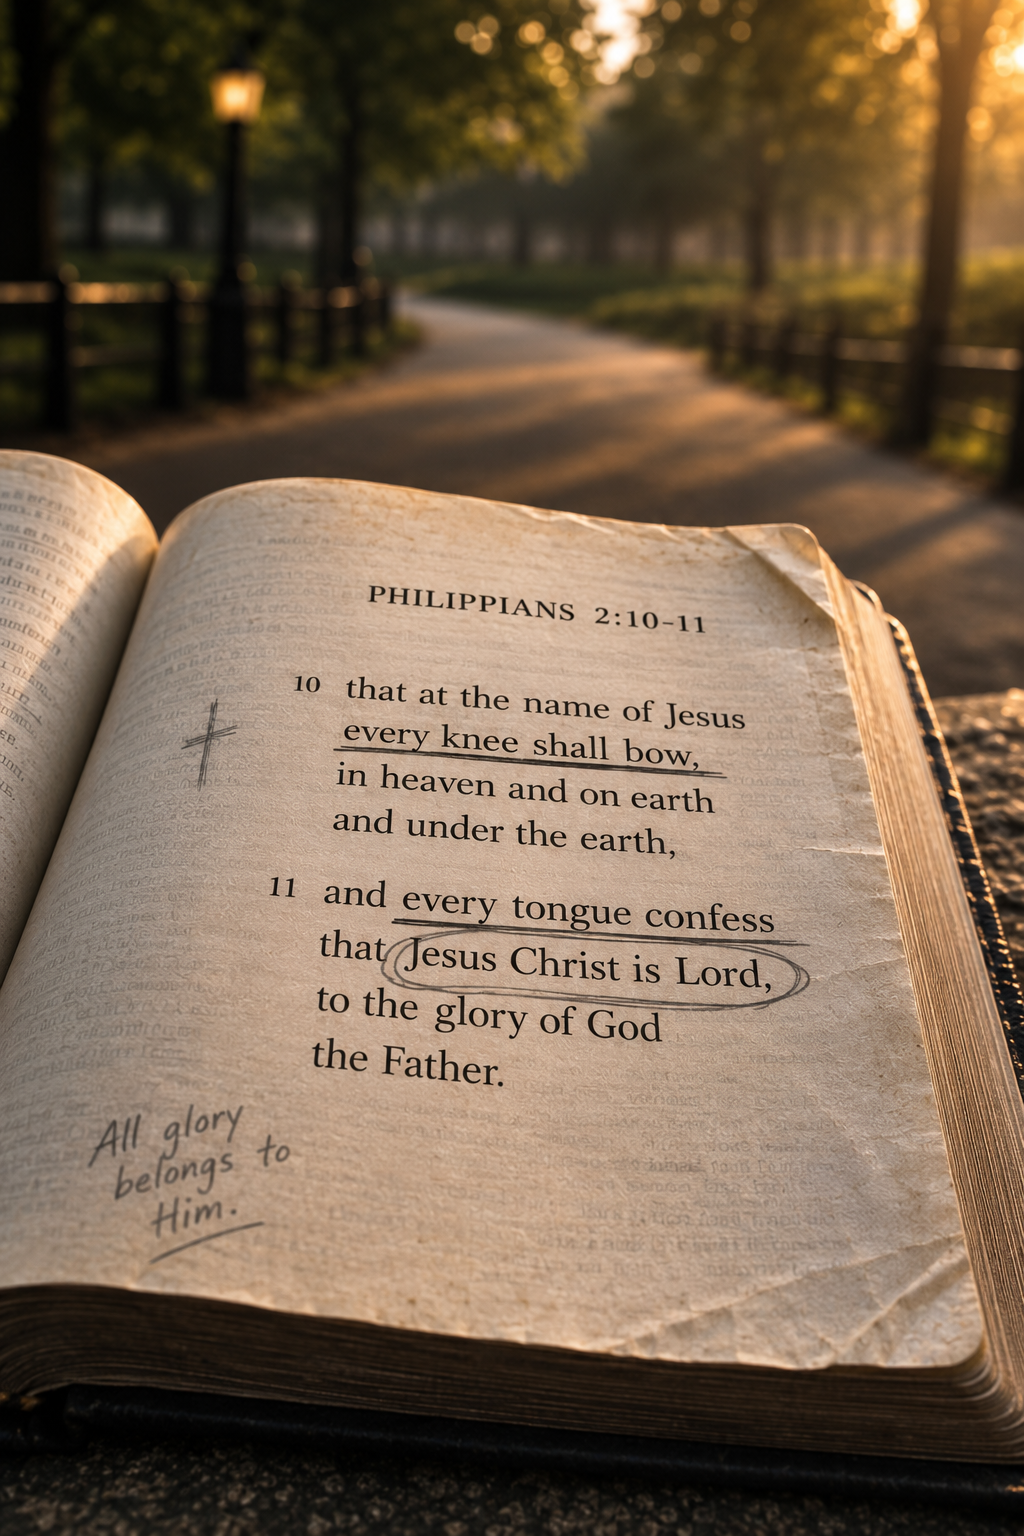 PHILIPPIANS 2:10-11
10 that at the name of Jesus
every knee shall bow,
in heaven and on earth
and under the earth,
11 and every tongue confess
that Jesus Christ is Lord,
to the glory of God
the Father.
All glory
belongs to
Him.